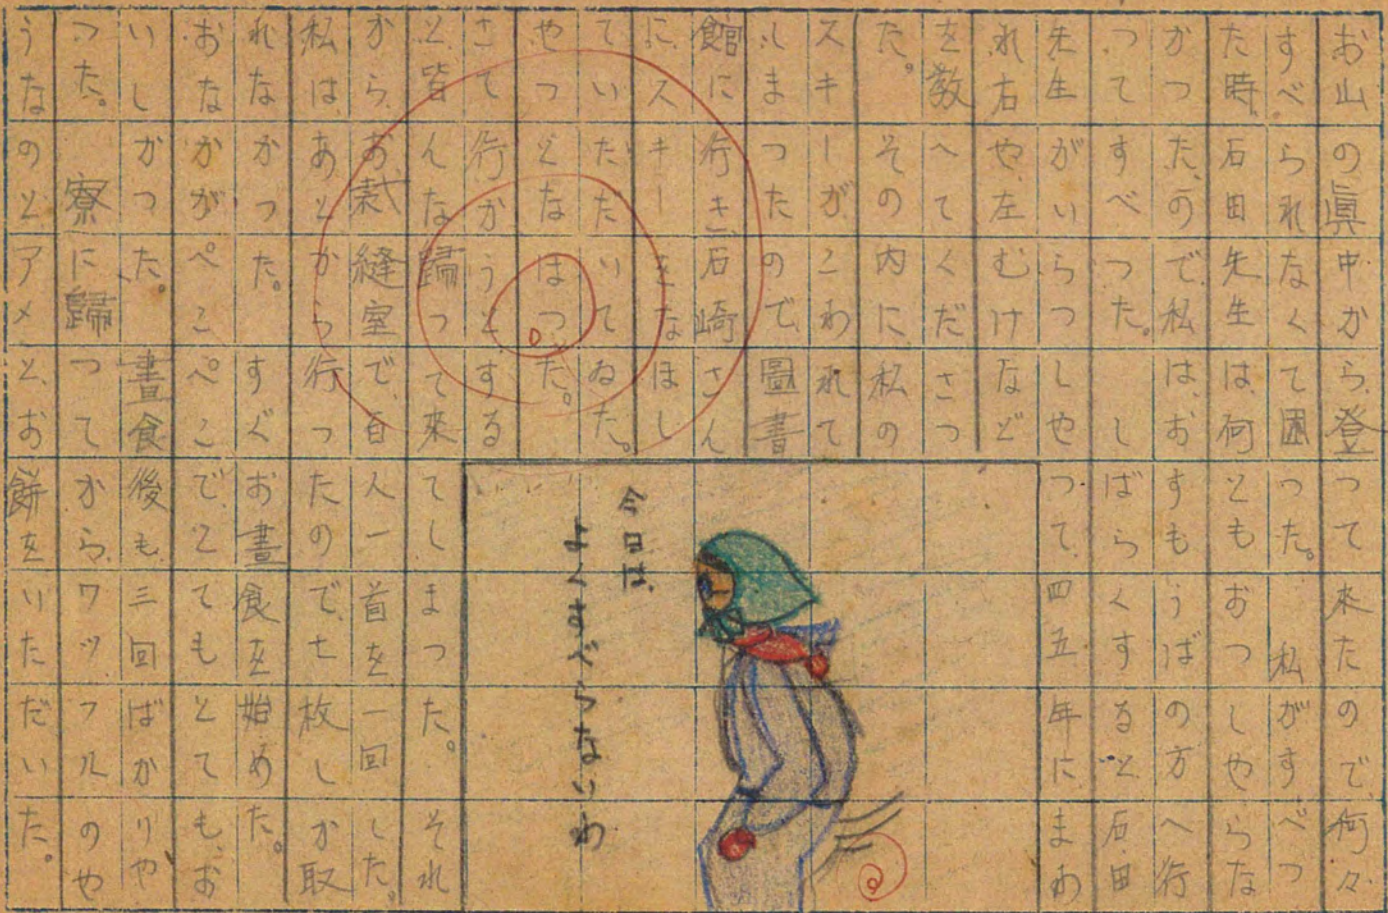 お山の眞中から、登って来たので、何々
すべられなくて困った。　私がすべつ
た時、石田先生は、何ともおつしやらな
かつた、ので、私は、おすもうばの方へ行
つてすべつた。　しばらくすると、石田
先生がいらつしやつて、四五年にまわ
れ右や、左むけなど
を教へてくださつ
た。　その内に、私の
スキーがこわれて
しまつたので、圖書
館に行き、石崎さん
に、スキーをなほし
ていただいてゐた。
やつとなほつた。
さて行かうとする
と、皆んな歸って来てしまつた。　それ
から、お裁縫室で、百人一首を一回した。
私は、あとから行ったので、七枚しか取
れなかつた。　すぐお晝食を始めた。
おなかがペこぺこで、とてもとても、お
いしかつた。　晝食後も、三回ばかりや
つた。　寮に歸つてから、ワッフルのや
うなのと、アメと、お餅をいただいた。
今日は、
よくすべらないわ